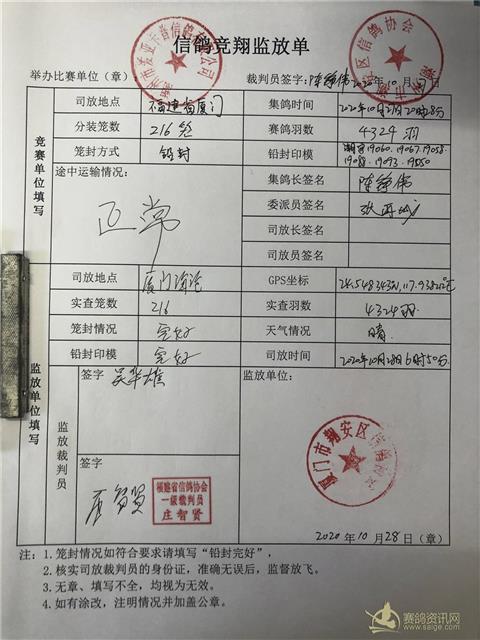 信鸽竞翔监放单
举办比赛单位（章）：
裁判员签字：陈 伟 2020年10月27日
竞赛单位填写
司放地点 福建省厦门 集鸽时间 2020年10月27日20时28分
分装笼数 216笼 赛鸽羽数 4324羽
笼封方式 铅封 铅封印模 19060.19067.19058.
19088.19093.19550
途中运输情况：
正常
集鸽长签名 陈 伟
委派员签名
司放长签名
司放员签名
监放单位填写
司放地点 厦门海沧 GPS坐标
实查笼数 216 实查羽数 4324羽
笼封情况 完好 天气情况 晴
铅封印模 完好 司放时间 2020年10月28日6时50分
监放裁判员
签字 吴华雄
监放单位：
厦门市翔安区信鸽协会
签字
庄智贤
福建省信鸽协会
一级裁判员
庄智贤
2020年10月28日（章）
注：1.笼封情况如符合要求请填写“铅封完好”，
2.核实司放裁判员的身份证，准确无误后，监督放飞。
3.无章、填写不全，均视为无效。
4.如有涂改，注明情况并加盖公章。
赛鸽资讯网
www.saige.com